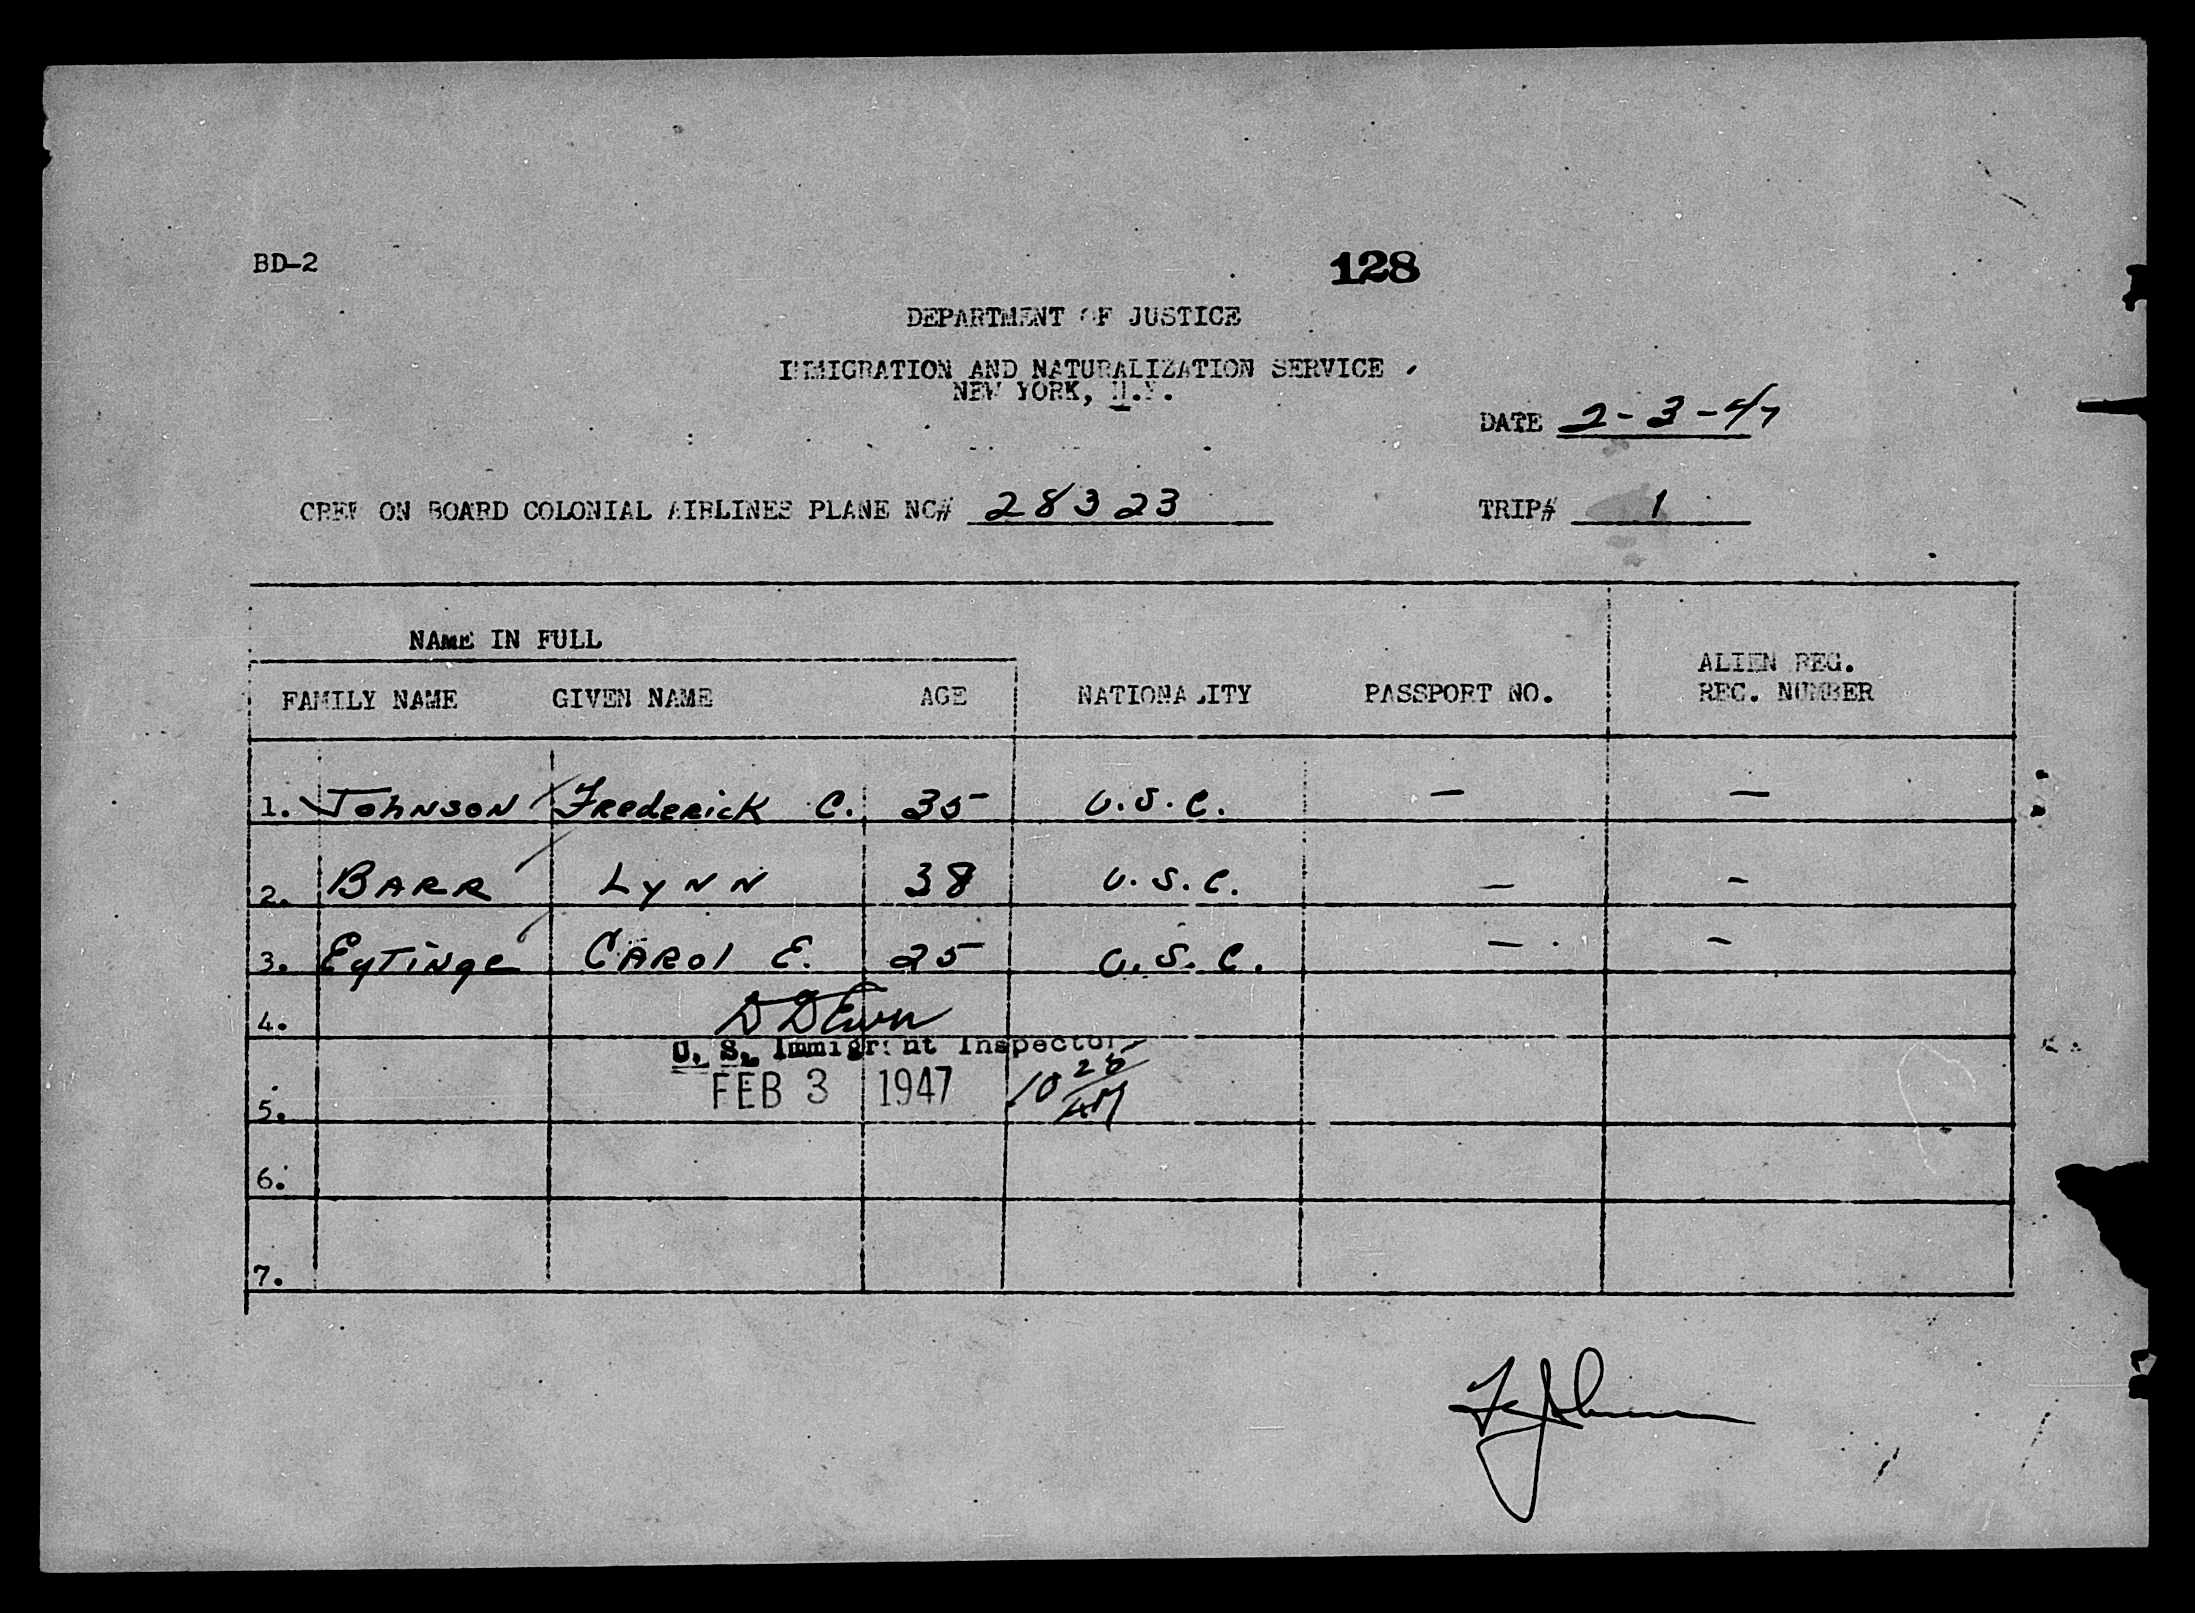 BD-2
128
DEPARTMENT OF JUSTICE
IMMIGRATION AND NATURALIZATION SERVICE
NEW YORK, N.Y.
DATE 2-3-47
CREW ON BOARD COLONIAL AIRLINES PLANE NC# 28323 TRIP# 1
NAME IN FULL
ALIEN REG.
FAMILY NAME GIVEN NAME AGE NATIONALITY PASSPORT NO. REC. NUMBER
1. Johnson Frederick C. 35 U.S.C. — —
2. BARR LYNN 38 U.S.C. — —
3. EyTinge CAROl E. 25 U.S.C. — —
4.
U. S. Immigrant Inspector
FEB 3 1947 10 25 AM
5.
6.
7.